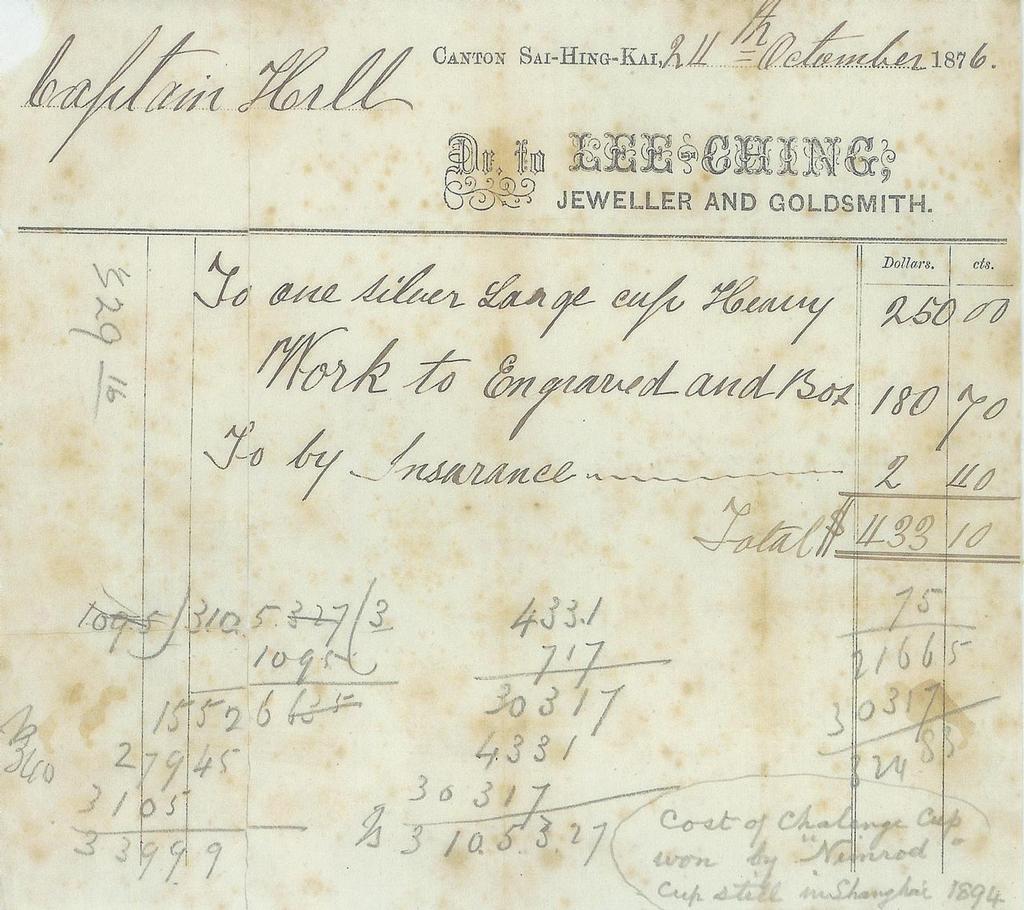 CANTON SAI-HING-KAI, 24th Octomber 1876.
Captain Hall
Dr. to LEE-CHING,
JEWELLER AND GOLDSMITH.
Dollars. cts.
To one silver Large cup Heavy 250 00
Work to Engraved and Box 180 70
To by Insurance 2 40
Total $ 433 10
529 16
1095 ) 310 5.327 ( 3
1095
1552 6 635
27945
3105
33999
340
4331
717
30317
4331
30317
310.53.27
75
21665
30317
324 83
Cost of Chalenge Cup
won by "Nimrod"
Cup still in Shanghai 1894